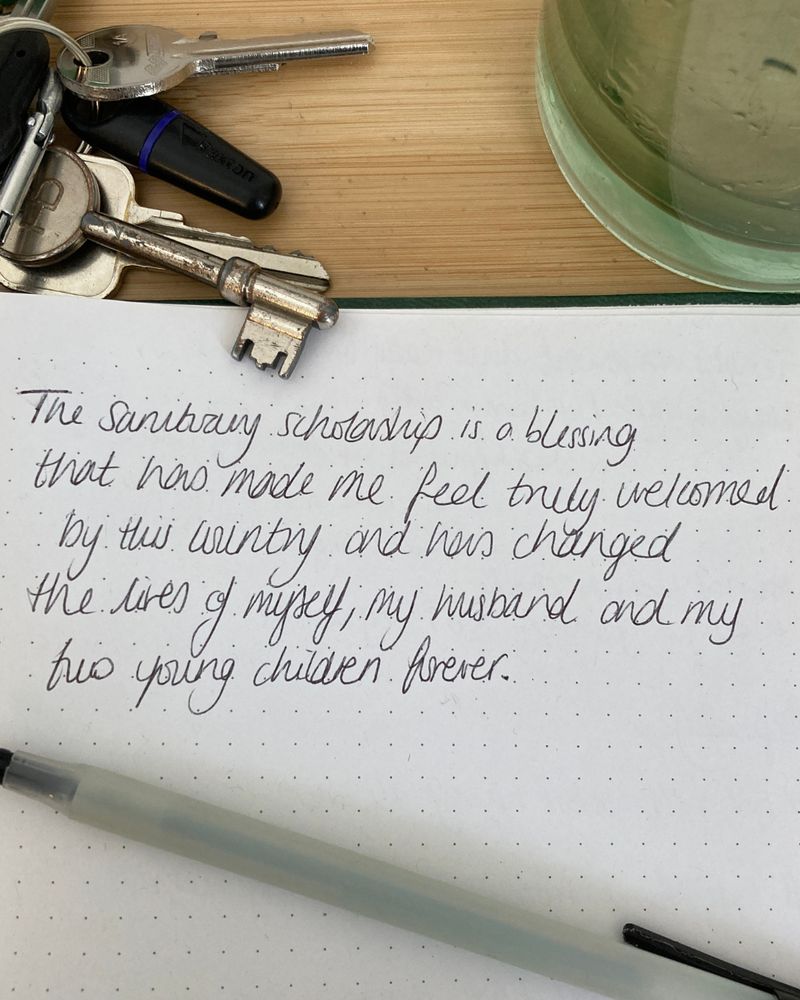 The Sanctuary scholarship is a blessing
that has made me feel truly welcomed
by this country and has changed
the lives of myself, my husband and my
two young children forever.